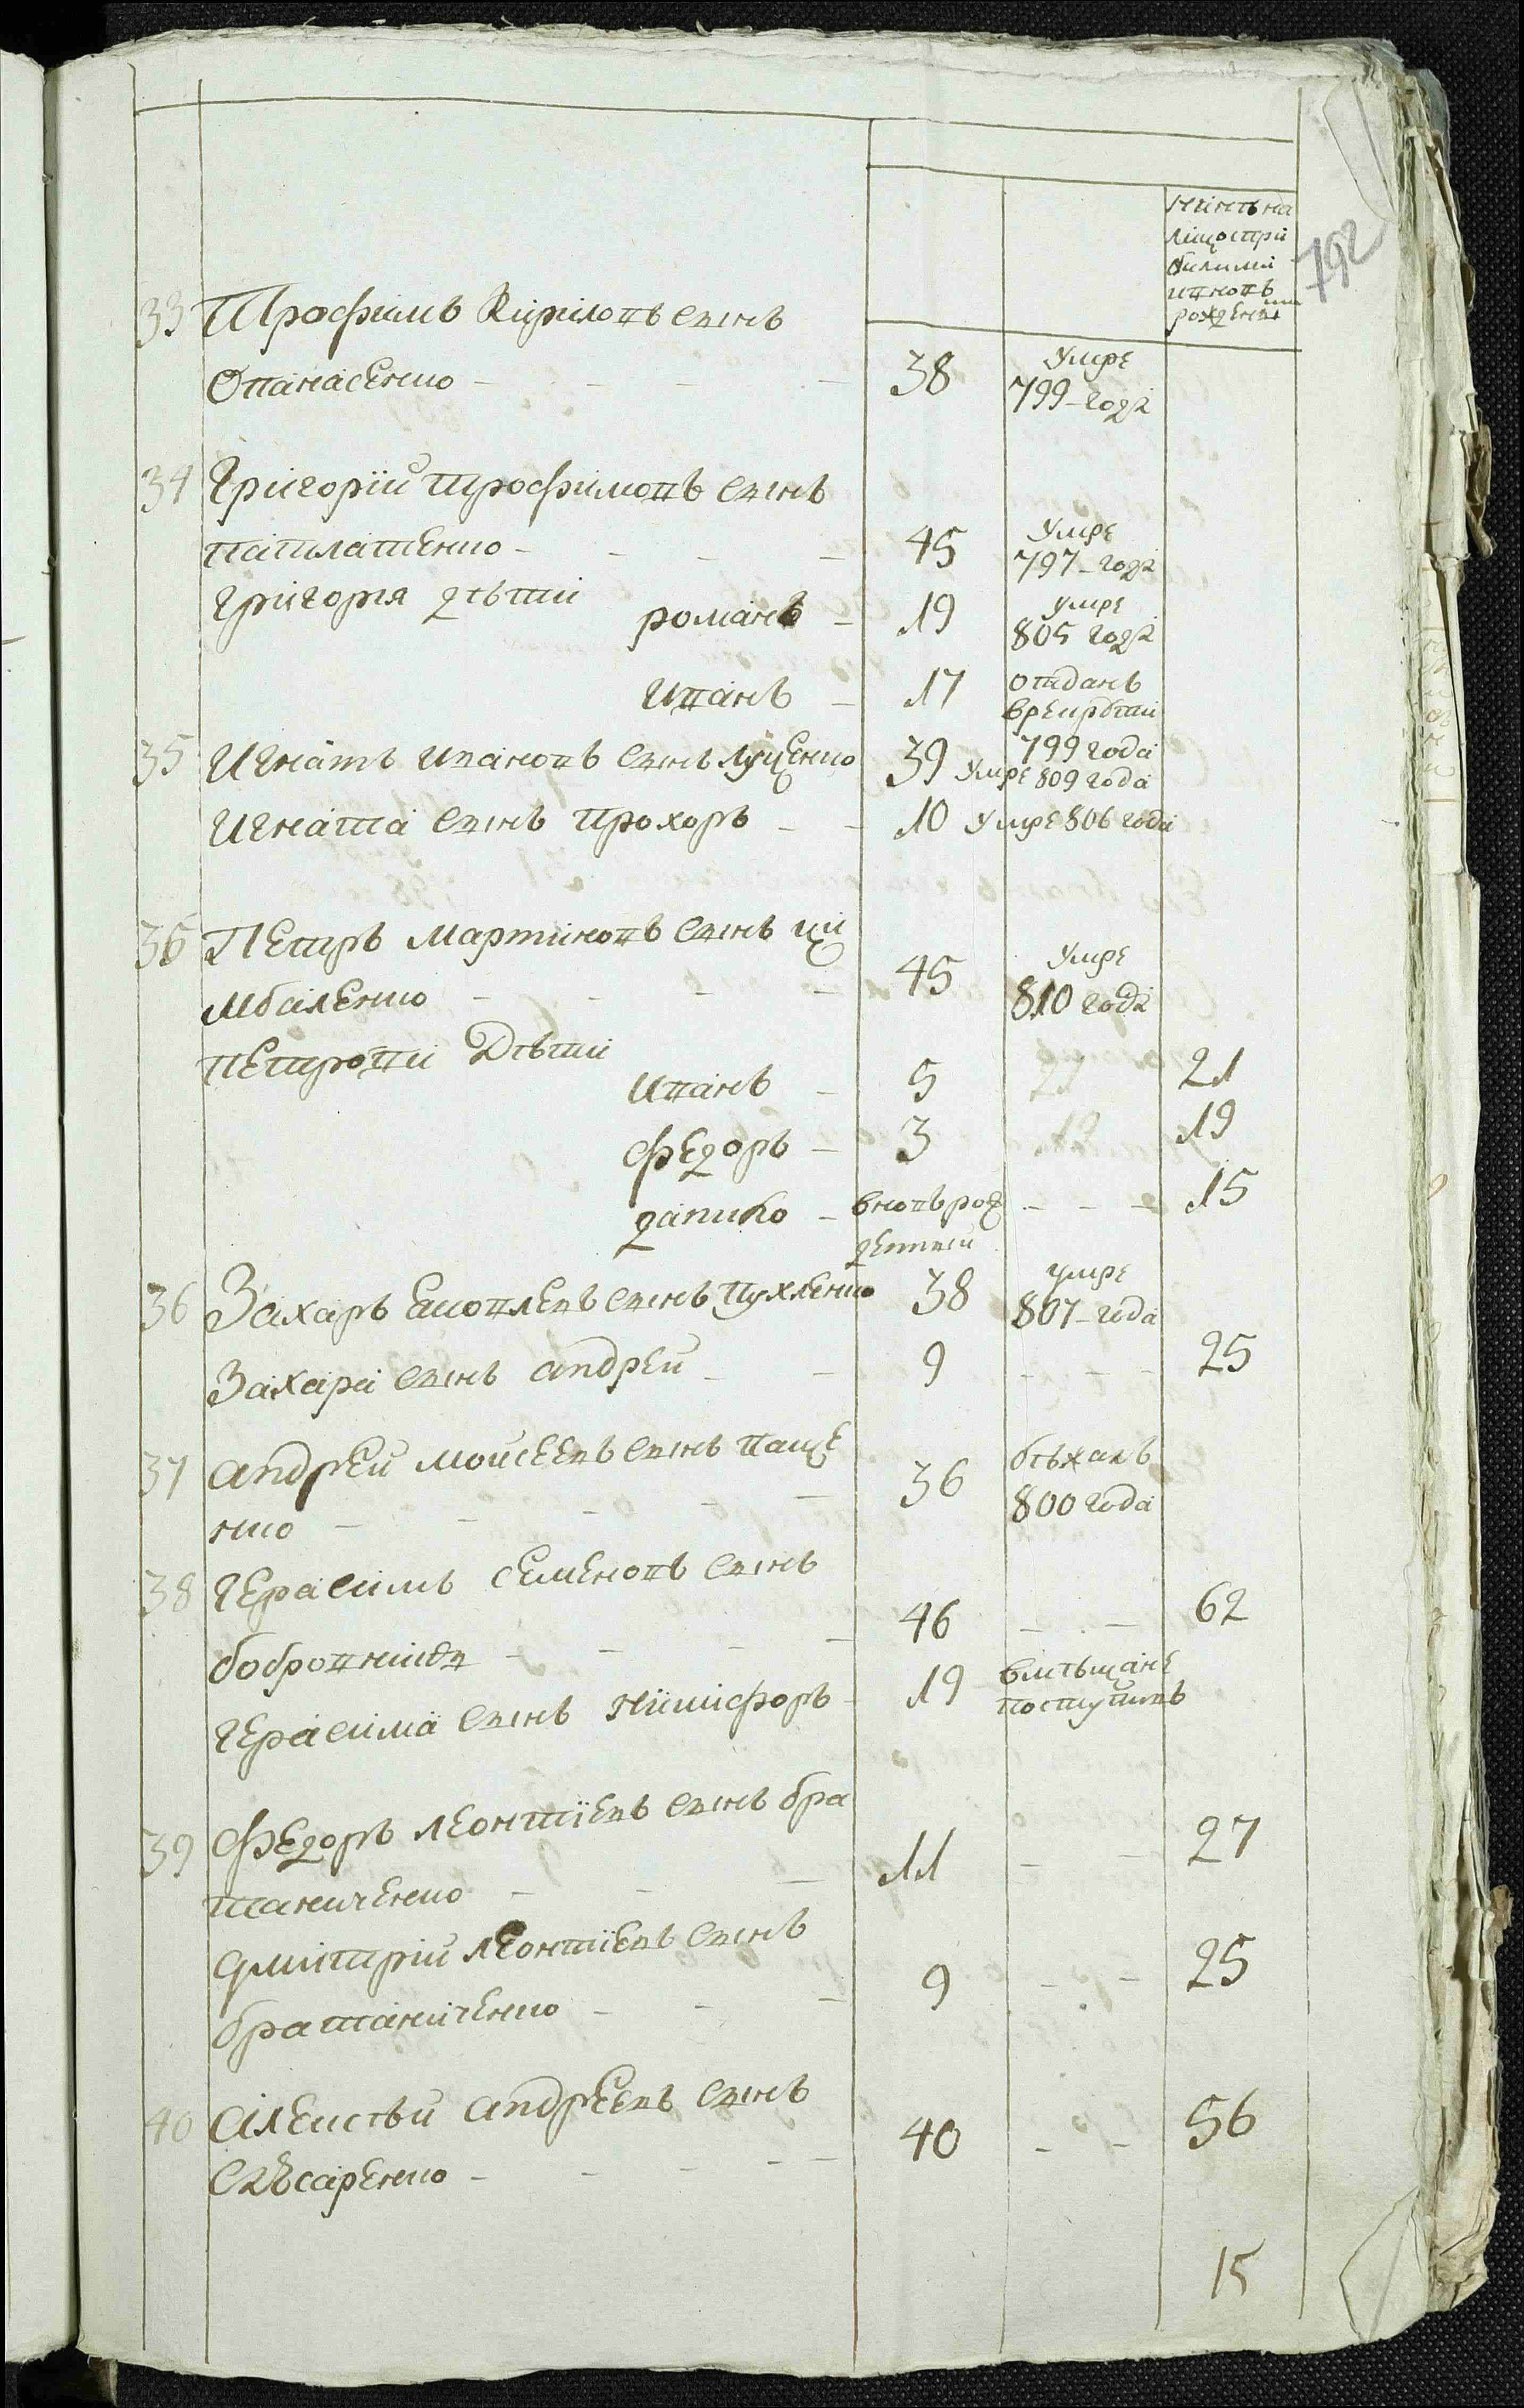 792
Нинѣ на
лицо при
бились
и вновь
рожденны
33 Трофимъ Кириловъ сынъ
Опанасенко - 38 умре 799 года
34 Григорій Трофимовъ сынъ
Павлашенко - 45 умре 797 года
Григорія дѣти
романъ - 19 умре 805 года
Иванъ - 17 отданъ врекруты
799 года
35 Игнатъ Ивановъ сынъ Луценко 39 умре 809 года
Игната сынъ Прохоръ - 10 умре 806 года
36 Петръ Мартиновъ сынъ ци
мбаленко - 45 умре 810 года
Петровы Дѣти
Иванъ - 5 21
Федоръ - 3 19
данило - вновъ рож - 15
денны
36 Захаръ Яковлевъ сынъ Пухленко 38 умре 807 года
Захара сынъ андрей - 9 - 25
37 андрей моисеевъ сынъ паще
нко - 36 бѣжалъ 800 года
38 Герасимъ Семеновъ сынъ
бобровникъ - 46 - 62
Герасима сынъ никифоръ - 19 вмѣщане поступилъ
39 Федоръ леонтіевъ сынъ бра
таниченко - 11 - 27
дмитрій леонтіевъ сынъ
братаниченко - 9 - 25
40 алексѣй андреевъ сынъ
слѣсаренко - 40 - 56
15